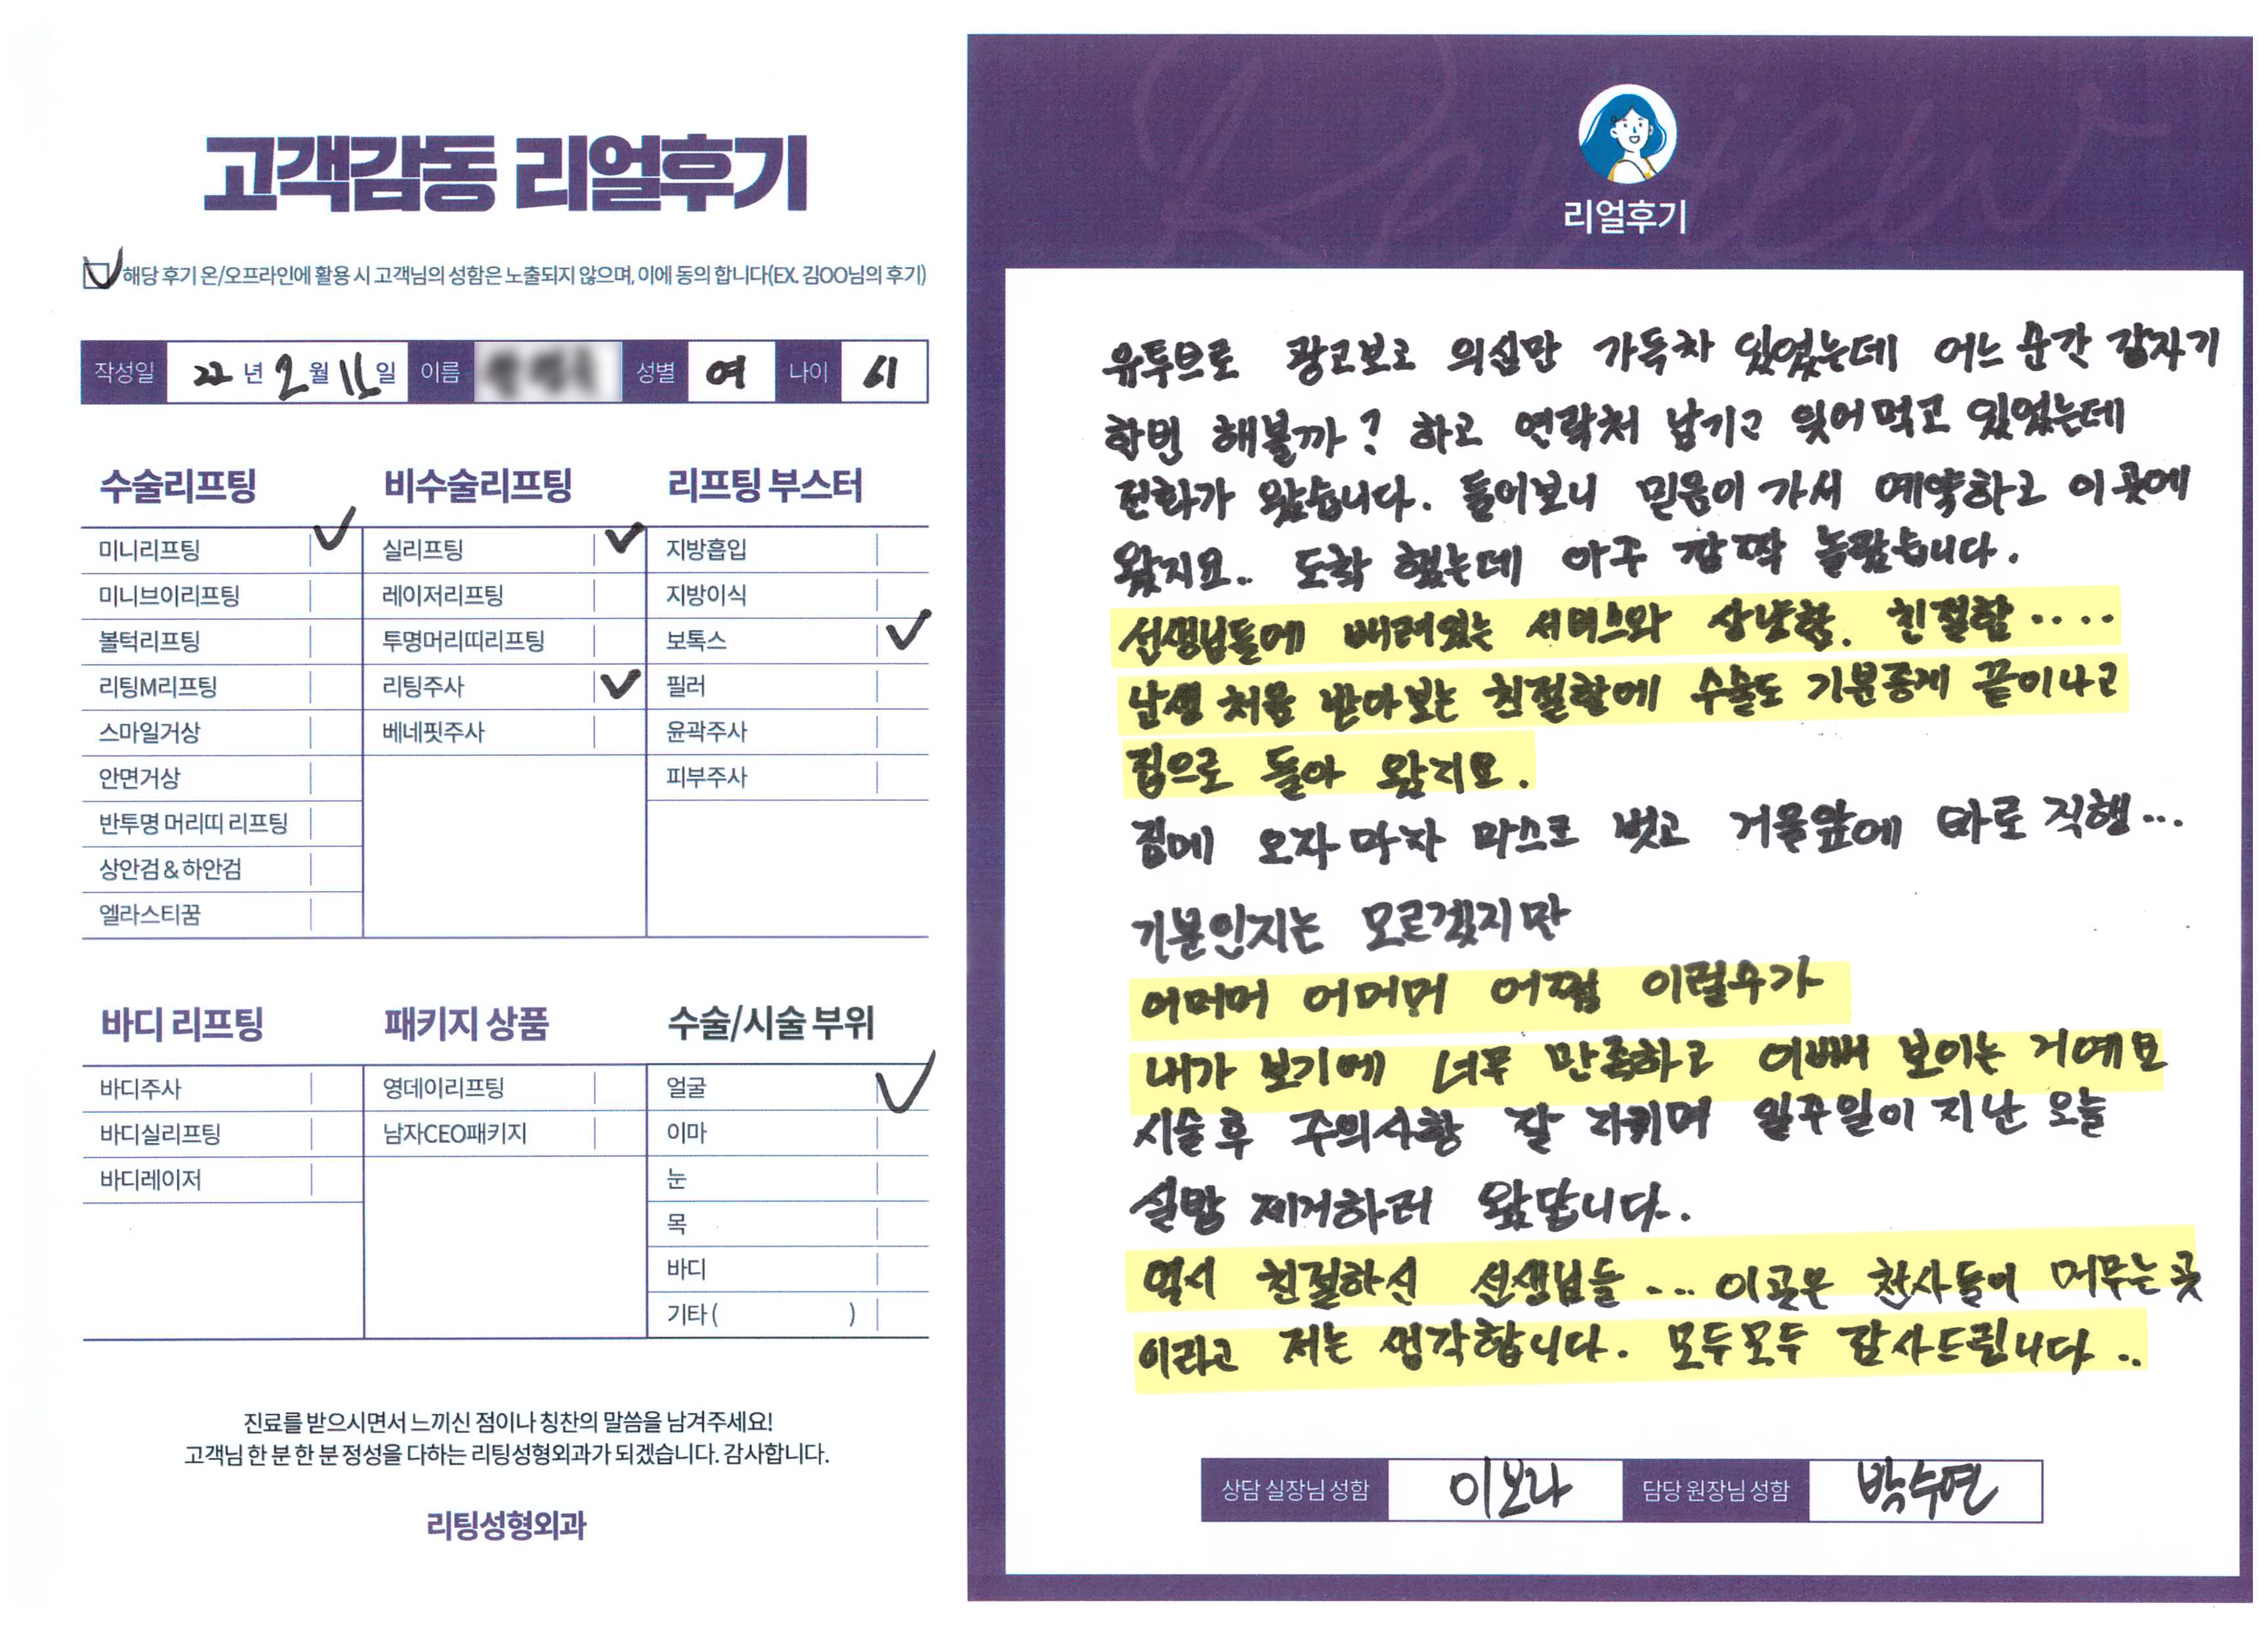 고객감동 리얼후기
해당 후기 온/오프라인에 활용 시 고객님의 성함은 노출되지 않으며, 이에 동의 합니다(EX. 김OO님의 후기)
작성일 22년 2월 11일 이름 성별 여 나이 61
수술리프팅
미니리프팅
미니브이리프팅
볼턱리프팅
리팅M리프팅
스마일거상
안면거상
반투명 머리띠 리프팅
상안검 & 하안검
엘라스티꿈
비수술리프팅
실리프팅
레이저리프팅
투명머리띠리프팅
리팅주사
베네핏주사
리프팅 부스터
지방흡입
지방이식
보톡스
필러
윤곽주사
피부주사
바디 리프팅
바디주사
바디실리프팅
바디레이저
패키지 상품
영데이리프팅
남자CEO패키지
수술/시술 부위
얼굴
이마
눈
목
바디
기타 ( )
진료를 받으시면서 느끼신 점이나 칭찬의 말씀을 남겨주세요!
고객님 한 분 한 분 정성을 다하는 리팅성형외과가 되겠습니다. 감사합니다.
리팅성형외과
Review
리얼후기
유투브로 광고보고 의심만 가득차 있었는데 어느 순간 갑자기
한번 해볼까? 하고 연락처 남기고 잊어먹고 있었는데
전화가 왔습니다. 들어보니 믿음이 가서 예약하고 이곳에
왔지요.. 도착 했는데 아주 깜짝 놀랐습니다.
선생님들에 배려있는 서비스와 상냥함. 친절함 ....
난생 처음 받아보는 친절함에 수술도 기분좋게 끝이나고
집으로 돌아 왔지요.
집에 오자마자 마스크 벗고 거울앞에 바로 직행...
기분인지는 모르겠지만
어머머 어머머 어쩜 이럴수가
내가 보기에 너무 만족하고 이뻐 보이는 거예요
시술후 주의사항 잘 지키며 일주일이 지난 오늘
실밥 제거하러 왔답니다.
역시 친절하신 선생님들 ... 이곳은 천사들이 머무는 곳
이라고 저는 생각합니다. 모두모두 감사드립니다 ..
상담 실장님 성함 이보라 담당 원장님 성함 박수연